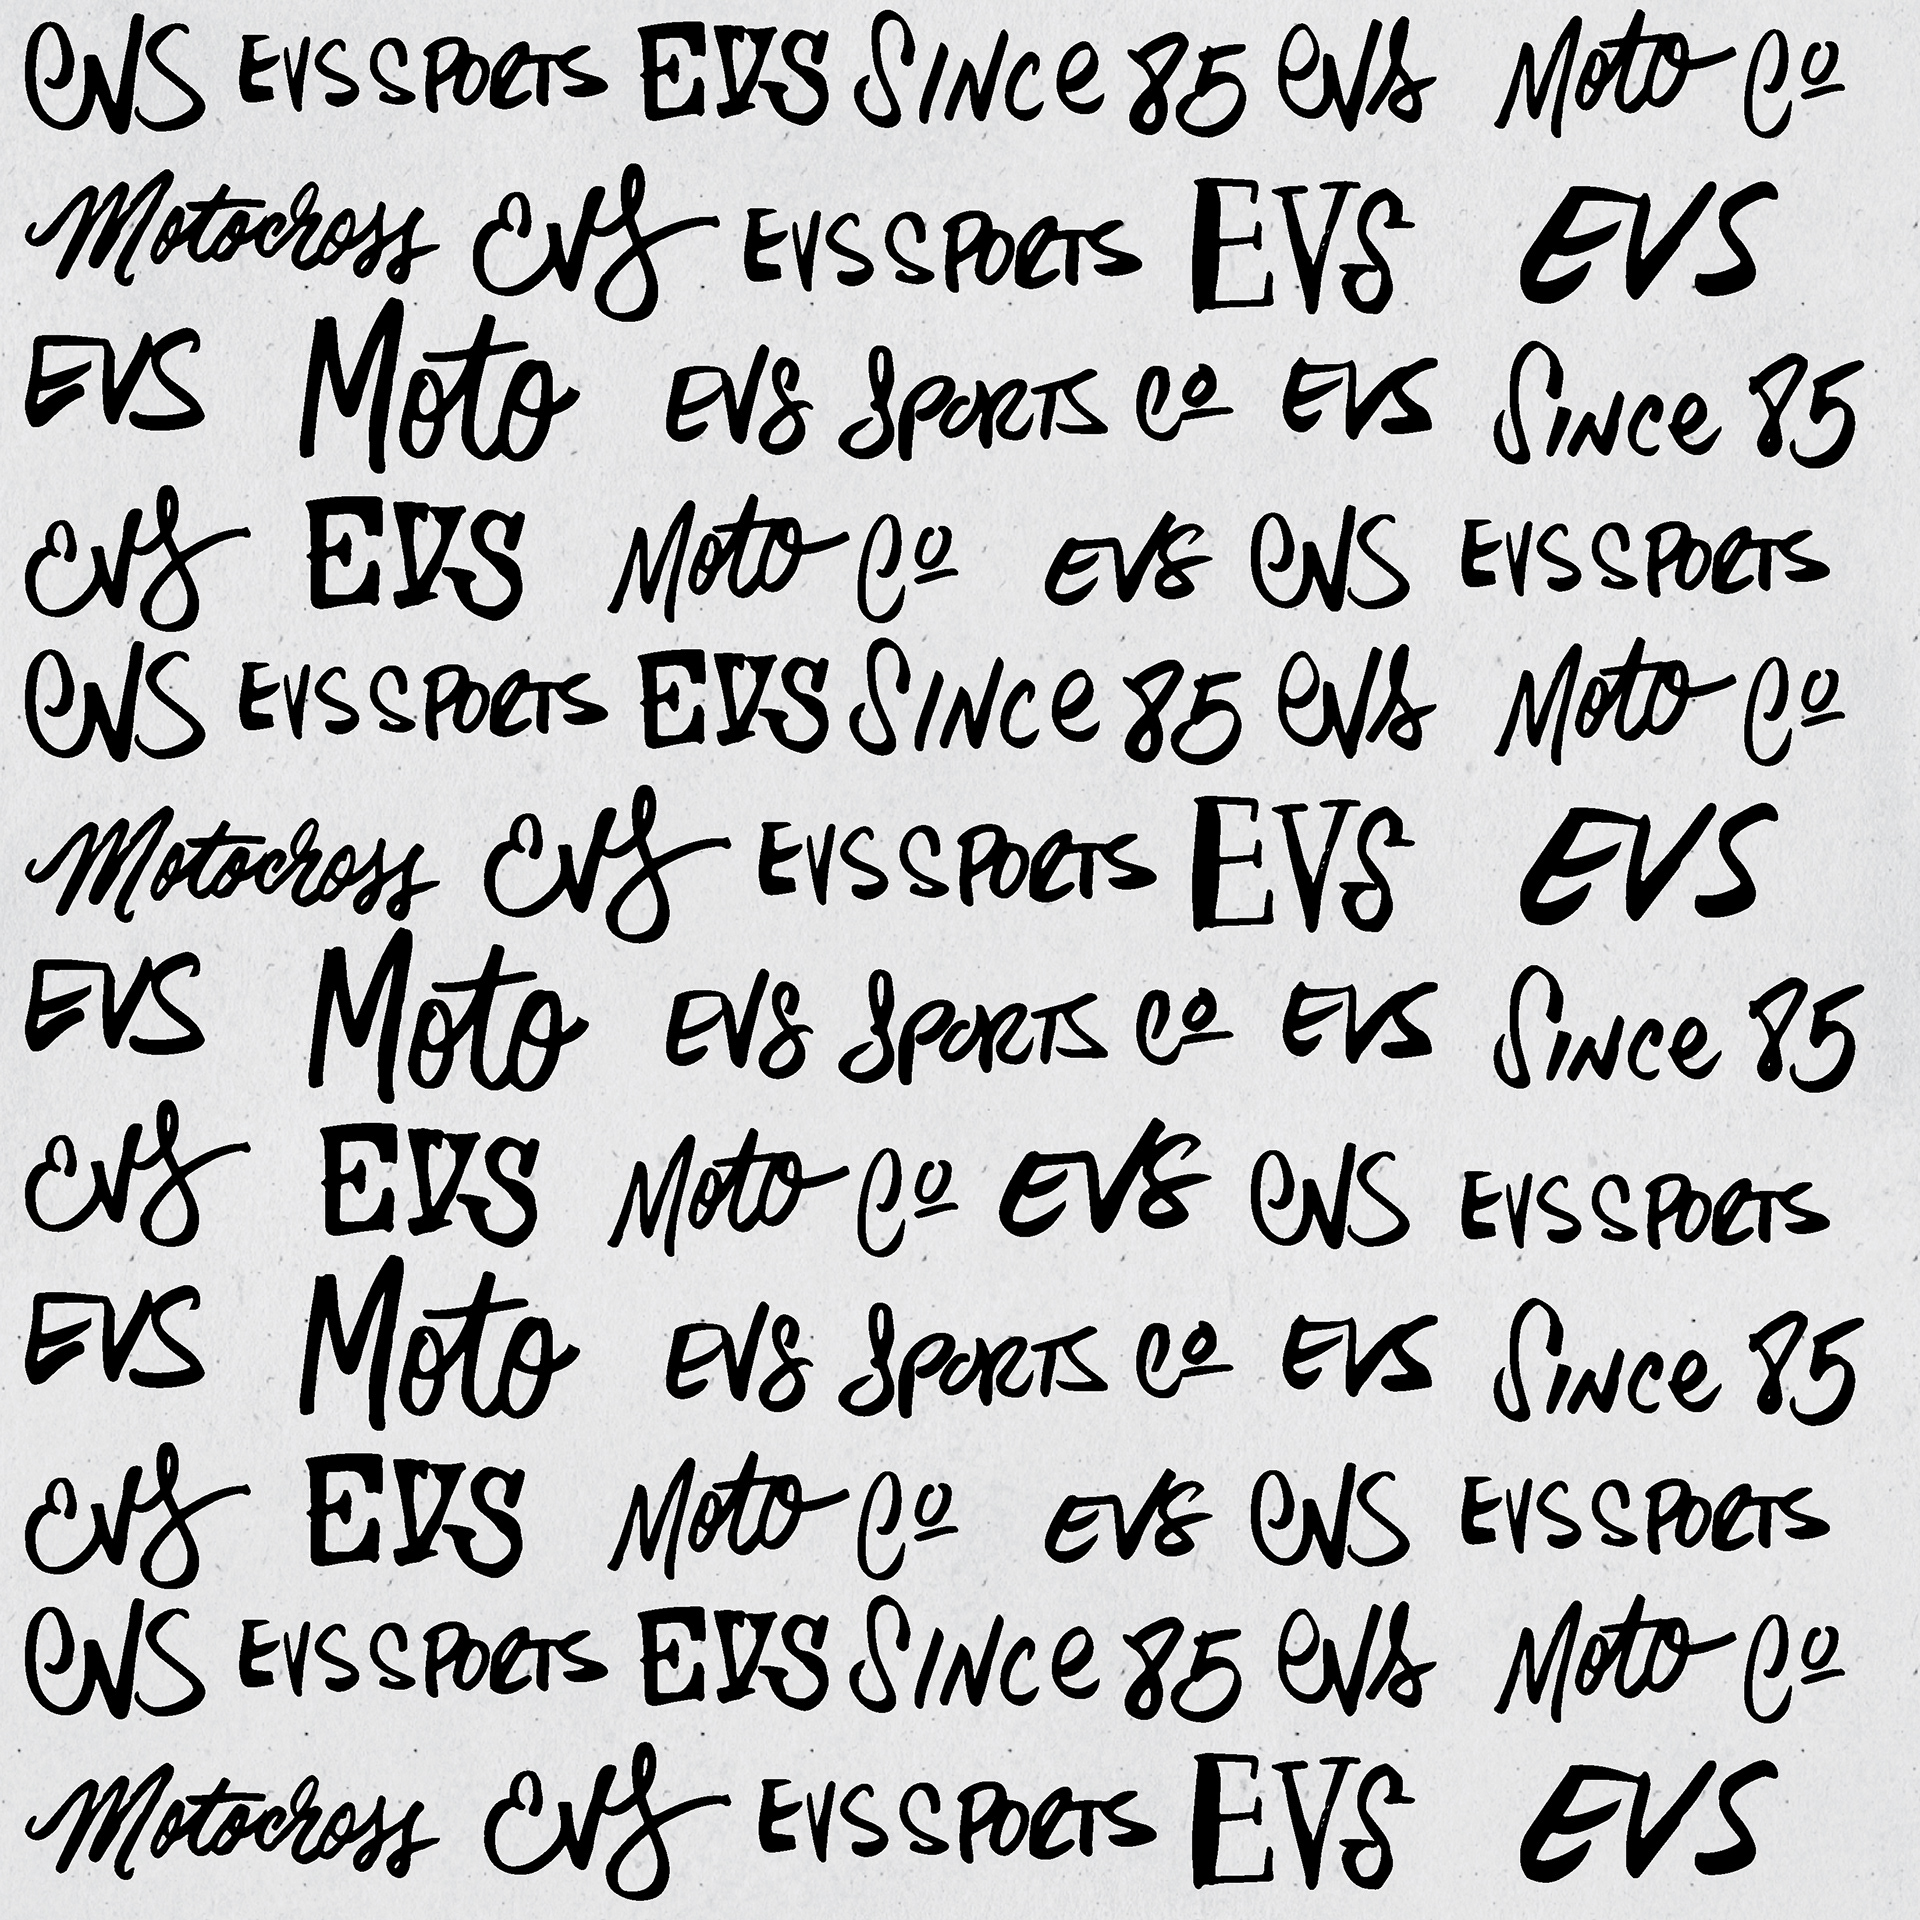 EVS EVS SPORTS EVS SINCE 85 EVS Moto Co
Motocross EVS EVS SPORTS EVS EVS
EVS Moto EVS SPORTS Co EVS SINCE 85
EVS EVS Moto Co EVS EVS EVS SPORTS
EVS EVS SPORTS EVS SINCE 85 EVS Moto Co
Motocross EVS EVS SPORTS EVS EVS
EVS Moto EVS SPORTS Co EVS SINCE 85
EVS EVS Moto Co EVS EVS EVS SPORTS
EVS Moto EVS SPORTS Co EVS SINCE 85
EVS EVS Moto Co EVS EVS EVS SPORTS
EVS EVS SPORTS EVS SINCE 85 EVS Moto Co
Motocross EVS EVS SPORTS EVS EVS